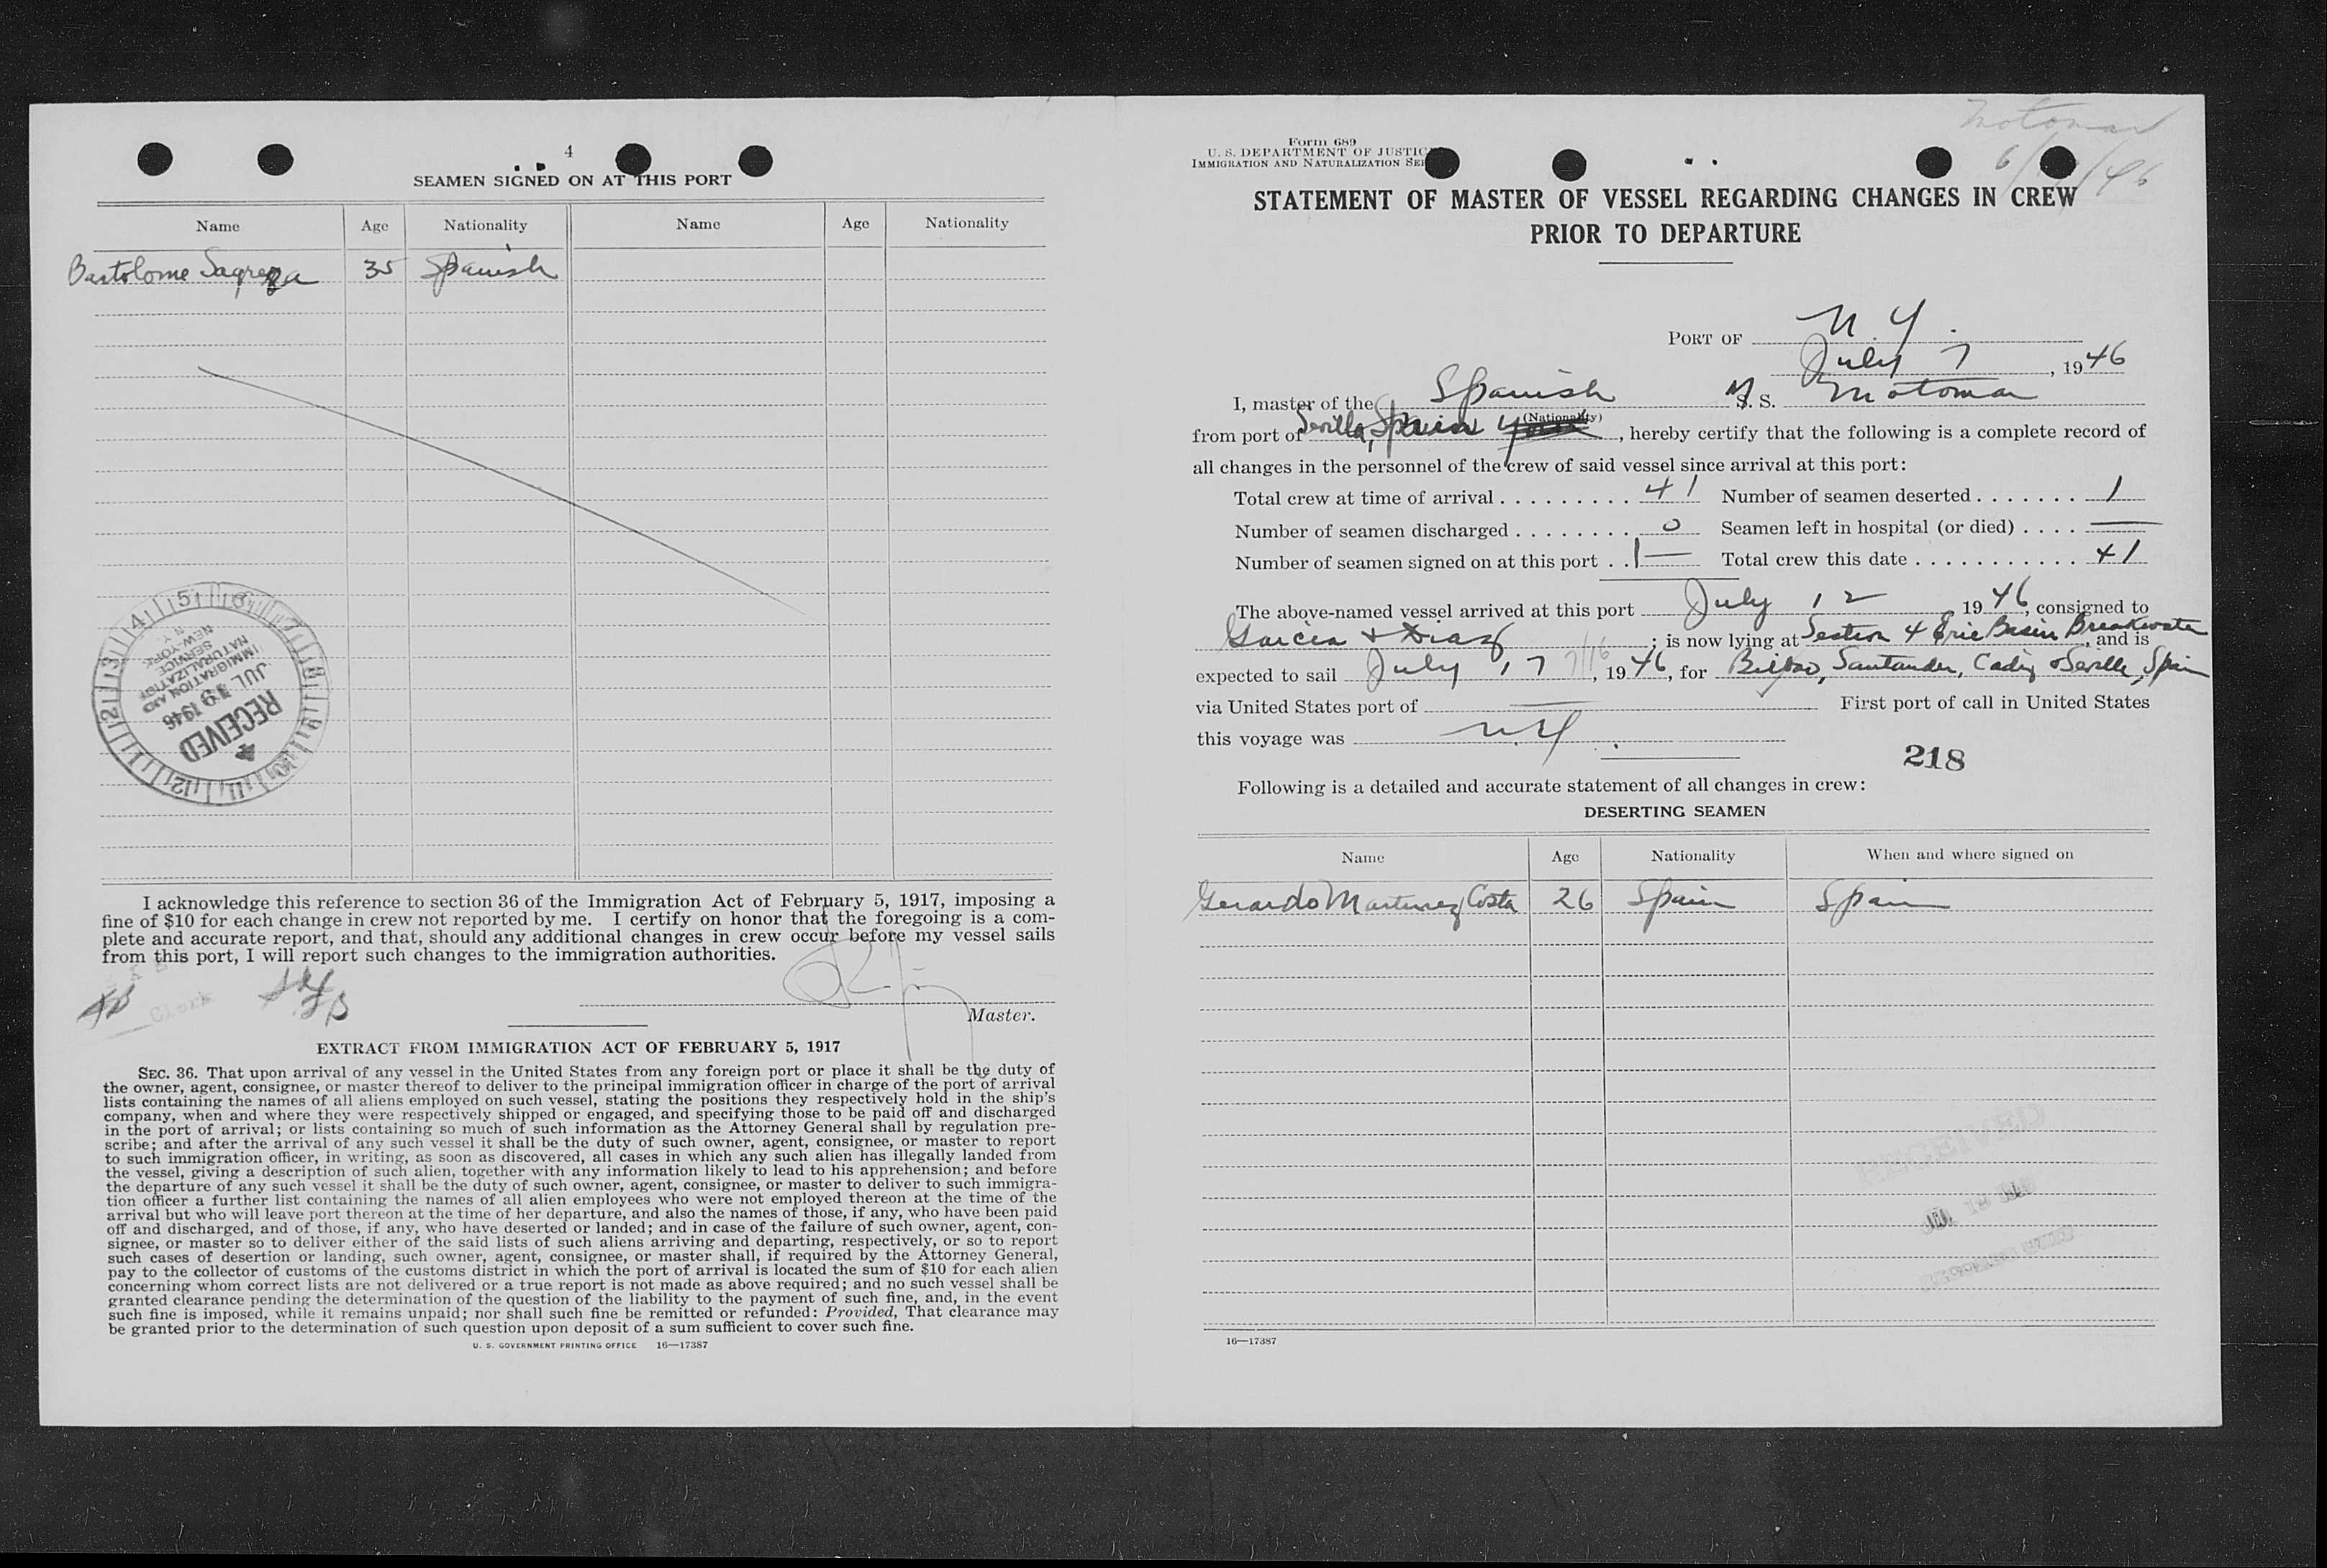 4
SEAMEN SIGNED ON AT THIS PORT
Name Age Nationality Name Age Nationality
Bartolome Sagrera 35 Spanish
5 6 7 8 9 10 11 12 1 2 3 4
IMMIGRATION AND
NATURALIZATION
SERVICE
NEW YORK
N. Y.
JUL 19 1946
RECEIVED
I acknowledge this reference to section 36 of the Immigration Act of February 5, 1917, imposing a
fine of $10 for each change in crew not reported by me. I certify on honor that the foregoing is a com-
plete and accurate report, and that, should any additional changes in crew occur before my vessel sails
from this port, I will report such changes to the immigration authorities.
Clerk
Master.
EXTRACT FROM IMMIGRATION ACT OF FEBRUARY 5, 1917
SEC. 36. That upon arrival of any vessel in the United States from any foreign port or place it shall be the duty of
the owner, agent, consignee, or master thereof to deliver to the principal immigration officer in charge of the port of arrival
lists containing the names of all aliens employed on such vessel, stating the positions they respectively hold in the ship's
company, when and where they were respectively shipped or engaged, and specifying those to be paid off and discharged
in the port of arrival; or lists containing so much of such information as the Attorney General shall by regulation pre-
scribe; and after the arrival of any such vessel it shall be the duty of such owner, agent, consignee, or master to report
to such immigration officer, in writing, as soon as discovered, all cases in which any such alien has illegally landed from
the vessel, giving a description of such alien, together with any information likely to lead to his apprehension; and before
the departure of any such vessel it shall be the duty of such owner, agent, consignee, or master to deliver to such immigra-
tion officer a further list containing the names of all alien employees who were not employed thereon at the time of the
arrival but who will leave port thereon at the time of her departure, and also the names of those, if any, who have been paid
off and discharged, and of those, if any, who have deserted or landed; and in case of the failure of such owner, agent, con-
signee, or master so to deliver either of the said lists of such aliens arriving and departing, respectively, or so to report
such cases of desertion or landing, such owner, agent, consignee, or master shall, if required by the Attorney General,
pay to the collector of customs of the customs district in which the port of arrival is located the sum of $10 for each alien
concerning whom correct lists are not delivered or a true report is not made as above required; and no such vessel shall be
granted clearance pending the determination of the question of the liability to the payment of such fine, and, in the event
such fine is imposed, while it remains unpaid; nor shall such fine be remitted or refunded: Provided, That clearance may
be granted prior to the determination of such question upon deposit of a sum sufficient to cover such fine.
U. S. GOVERNMENT PRINTING OFFICE 16—17387
Motomar
Form 689
U. S. DEPARTMENT OF JUSTICE
IMMIGRATION AND NATURALIZATION
STATEMENT OF MASTER OF VESSEL REGARDING CHANGES IN CREW
PRIOR TO DEPARTURE
PORT OF N. Y.
July 7, 1946
I, master of the Spanish M. S. Motomar
(Nationality)
from port of Sevilla, Spain, hereby certify that the following is a complete record of
all changes in the personnel of the crew of said vessel since arrival at this port:
Total crew at time of arrival . . . . . . . . . 41 Number of seamen deserted . . . . . . . 1
Number of seamen discharged . . . . . . . . 0 Seamen left in hospital (or died) . . . . —
Number of seamen signed on at this port . . 1 Total crew this date . . . . . . . . . . . 41
The above-named vessel arrived at this port July 12 1946, consigned to
Garcia + Diaz; is now lying at Section 4 Erie Basin Breakwater, and is
expected to sail July 17 7/16, 1946, for Bilbao, Santander, Cadiz + Seville, Spain
via United States port of — First port of call in United States
this voyage was N.Y.
218
Following is a detailed and accurate statement of all changes in crew:
DESERTING SEAMEN
Name Age Nationality When and where signed on
Gerardo Martinez Costa 26 Spain Spain
RECEIVED
16—17387